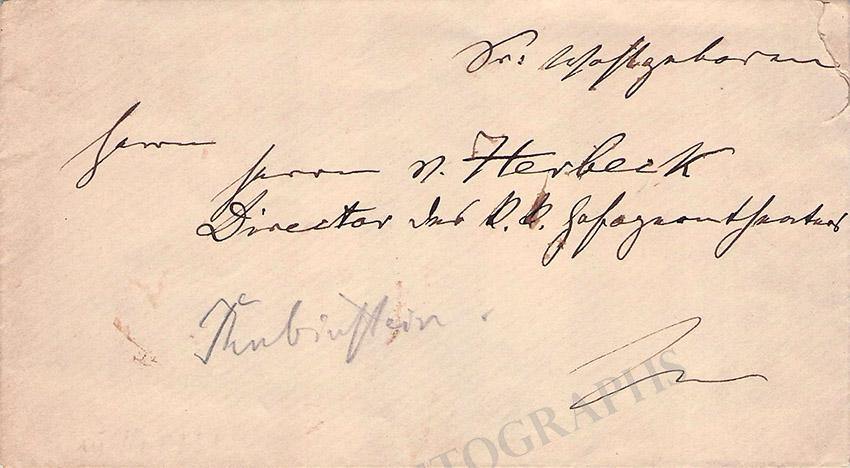 Sr: Wohlgeboren
Herrn
Herrn v. Herbeck
Director des k. k. Hofoperntheaters
Rubinstein.
TOGRAPHS